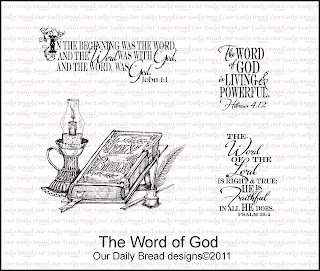 IN THE BEGINNING WAS THE WORD,
AND THE WORD WAS WITH GOD,
AND THE WORD, WAS God.
John 1:1
The WORD
OF GOD
IS LIVING &
POWERFUL.
Hebrews 4:12
HOLY
THE
Word
OF THE
Lord
IS RIGHT & TRUE;
HE IS
Faithful
IN ALL HE DOES.
PSALM 33:4
The Word of God
Our Daily Bread designs©2011